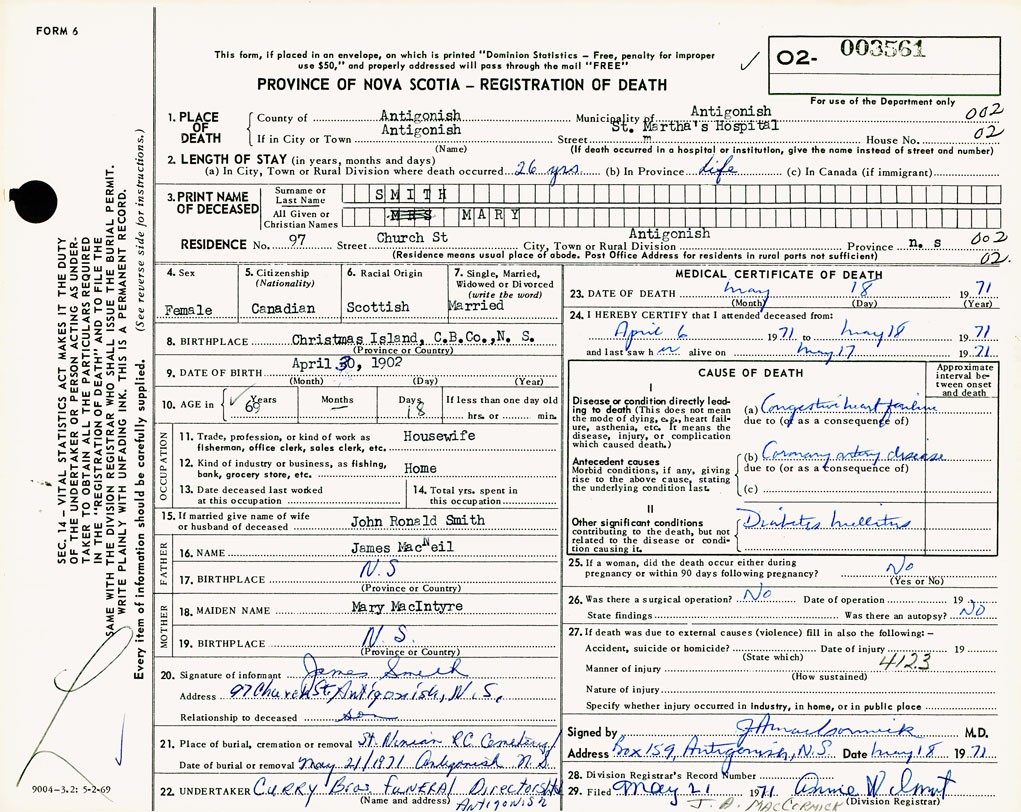 FORM 6
This form, if placed in an envelope, on which is printed "Dominion Statistics – Free, penalty for improper
use $50," and properly addressed will pass through the mail "FREE"
O2- 003561
For use of the Department only
PROVINCE OF NOVA SCOTIA – REGISTRATION OF DEATH
1. PLACE OF DEATH
County of Antigonish Municipality of Antigonish 002
If in City or Town Antigonish Street St. Martha's Hospital House No. 02
(Name) (If death occurred in a hospital or institution, give the name instead of street and number)
2. LENGTH OF STAY (in years, months and days)
(a) In City, Town or Rural Division where death occurred 26 yrs. (b) In Province Life (c) In Canada (if immigrant)
3. PRINT NAME OF DECEASED
Surname or Last Name SMITH
All Given or Christian Names MRS MARY
RESIDENCE No. 97 Street Church St City, Town or Rural Division Antigonish Province n. s 002
(Residence means usual place of abode. Post Office Address for residents in rural parts not sufficient) 02.
4. Sex Female
5. Citizenship (Nationality) Canadian
6. Racial Origin Scottish
7. Single, Married, Widowed or Divorced (write the word) Married
8. BIRTHPLACE Christmas Island, C.B.Co.,N. S.
(Province or Country)
9. DATE OF BIRTH April 30, 1902
(Month) (Day) (Year)
10. AGE in Years 69 Months — Days 18 If less than one day old
hrs. or min.
OCCUPATION
11. Trade, profession, or kind of work as fisherman, office clerk, sales clerk, etc. Housewife
12. Kind of industry or business, as fishing, bank, grocery store, etc. Home
13. Date deceased last worked at this occupation
14. Total yrs. spent in this occupation
15. If married give name of wife or husband of deceased John Ronald Smith
FATHER
16. NAME James MacNeil
17. BIRTHPLACE N.S
(Province or Country)
MOTHER
18. MAIDEN NAME Mary MacIntyre
19. BIRTHPLACE N.S.
(Province or Country)
20. Signature of informant James Smith
Address 97 Church St, Antigonish, N.S.
Relationship to deceased son
21. Place of burial, cremation or removal St. Ninian R.C. Cemetery
Date of burial or removal May 21/1971 Antigonish N.S.
22. UNDERTAKER CURRY Bros FUNERAL Directors
(Name and address) ANTIGONISH
MEDICAL CERTIFICATE OF DEATH
23. DATE OF DEATH May 18 1971
(Month) (Day) (Year)
24. I HEREBY CERTIFY that I attended deceased from:
April 6 1971 to May 18 1971
and last saw h er alive on May 17 1971
CAUSE OF DEATH
Approximate interval between onset and death
I
Disease or condition directly leading to death (This does not mean the mode of dying, e.g., heart failure, asthenia, etc. It means the disease, injury, or complication which caused death.)
(a) Congestive heart failure
due to (or as a consequence of)
Antecedent causes
Morbid conditions, if any, giving rise to the above cause, stating the underlying condition last.
(b) Coronary artery disease
due to (or as a consequence of)
(c)
II
Other significant conditions
contributing to the death, but not related to the disease or condition causing it.
Diabetes mellitus
25. If a woman, did the death occur either during pregnancy or within 90 days following pregnancy? No
(Yes or No)
26. Was there a surgical operation? No Date of operation 19
State findings Was there an autopsy? No
27. If death was due to external causes (violence) fill in also the following: –
Accident, suicide or homicide? Date of injury 19
(State which) 4123
Manner of injury
(How sustained)
Nature of injury
Specify whether injury occurred in industry, in home, or in public place
Signed by J A MacCormick M.D.
Address Box 159, Antigonish, N.S. Date May 18 1971
28. Division Registrar's Record Number
29. Filed May 21 1971 Annie
J. A. MACCORMICK (Division Registrar)
SEC. 14 – VITAL STATISTICS ACT MAKES IT THE DUTY
OF THE UNDERTAKER OR PERSON ACTING AS UNDER-
TAKER TO OBTAIN ALL THE PARTICULARS REQUIRED
IN THE "REGISTRATION OF DEATH" AND TO FILE THE
SAME WITH THE DIVISION REGISTRAR WHO SHALL ISSUE THE BURIAL PERMIT.
WRITE PLAINLY WITH UNFADING INK. THIS IS A PERMANENT RECORD.
Every item of information should be carefully supplied. (See reverse side for instructions.)
9004-3.2: 5-2-69